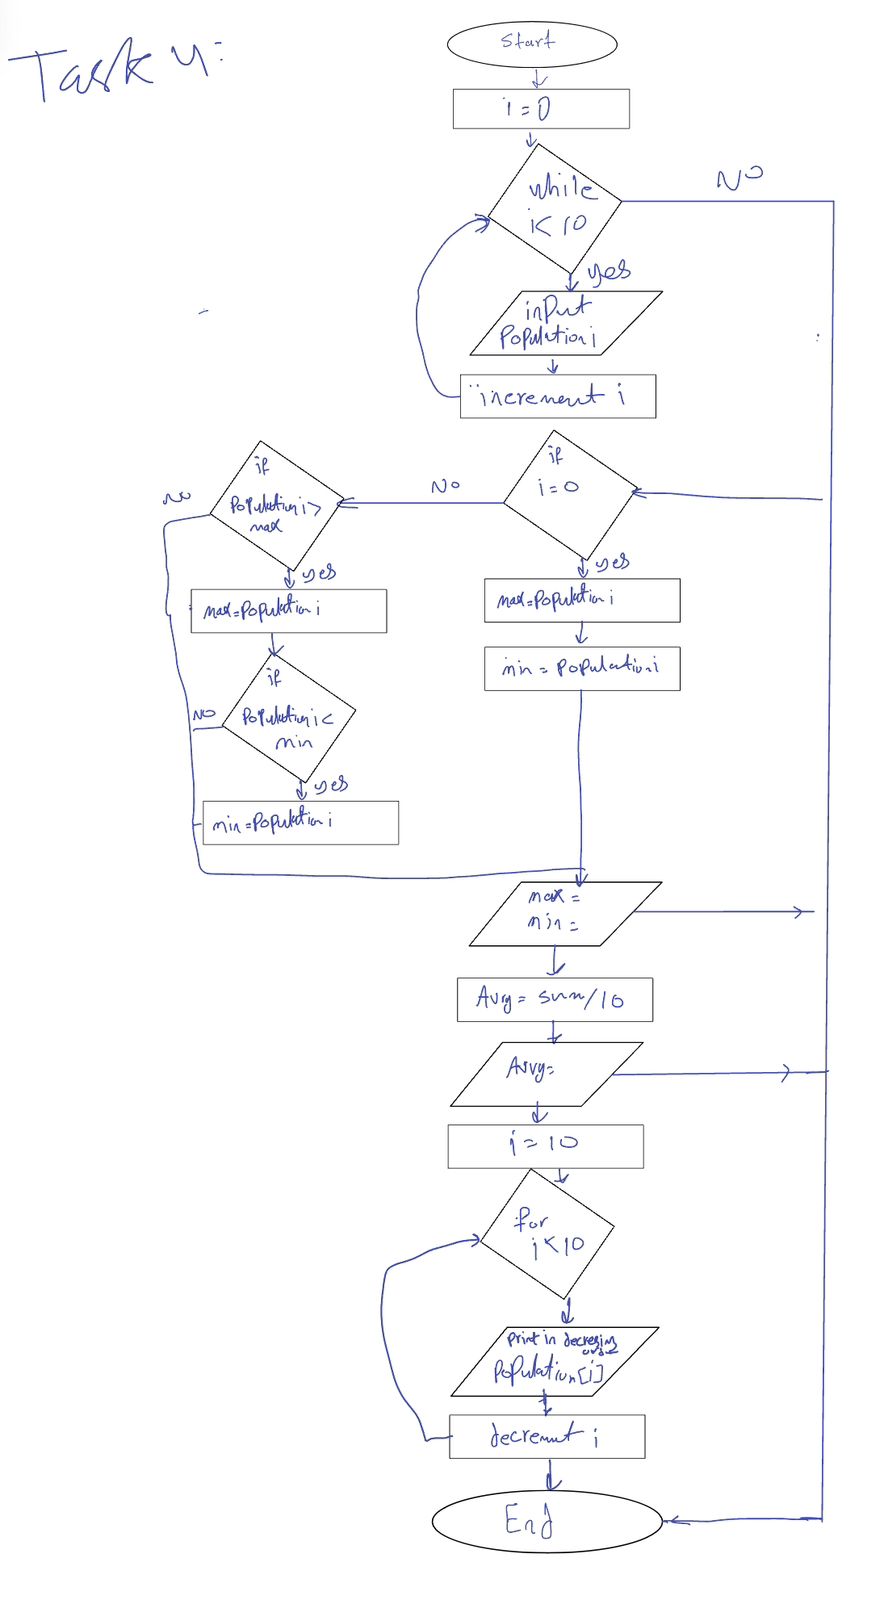 Task 4:
Start
i = 0
while
i < 10
NO
yes
input
Population i
increment i
if
i = 0
NO
if
Population i >
max
NO
yes
yes
max = Population i
max = Population i
min = Population i
if
Population i <
min
NO
yes
min = Population i
max =
min =
Avrg = sum/10
Avrg =
i = 10
for
i < 10
Print in decresing
Population[i]
decrement i
End